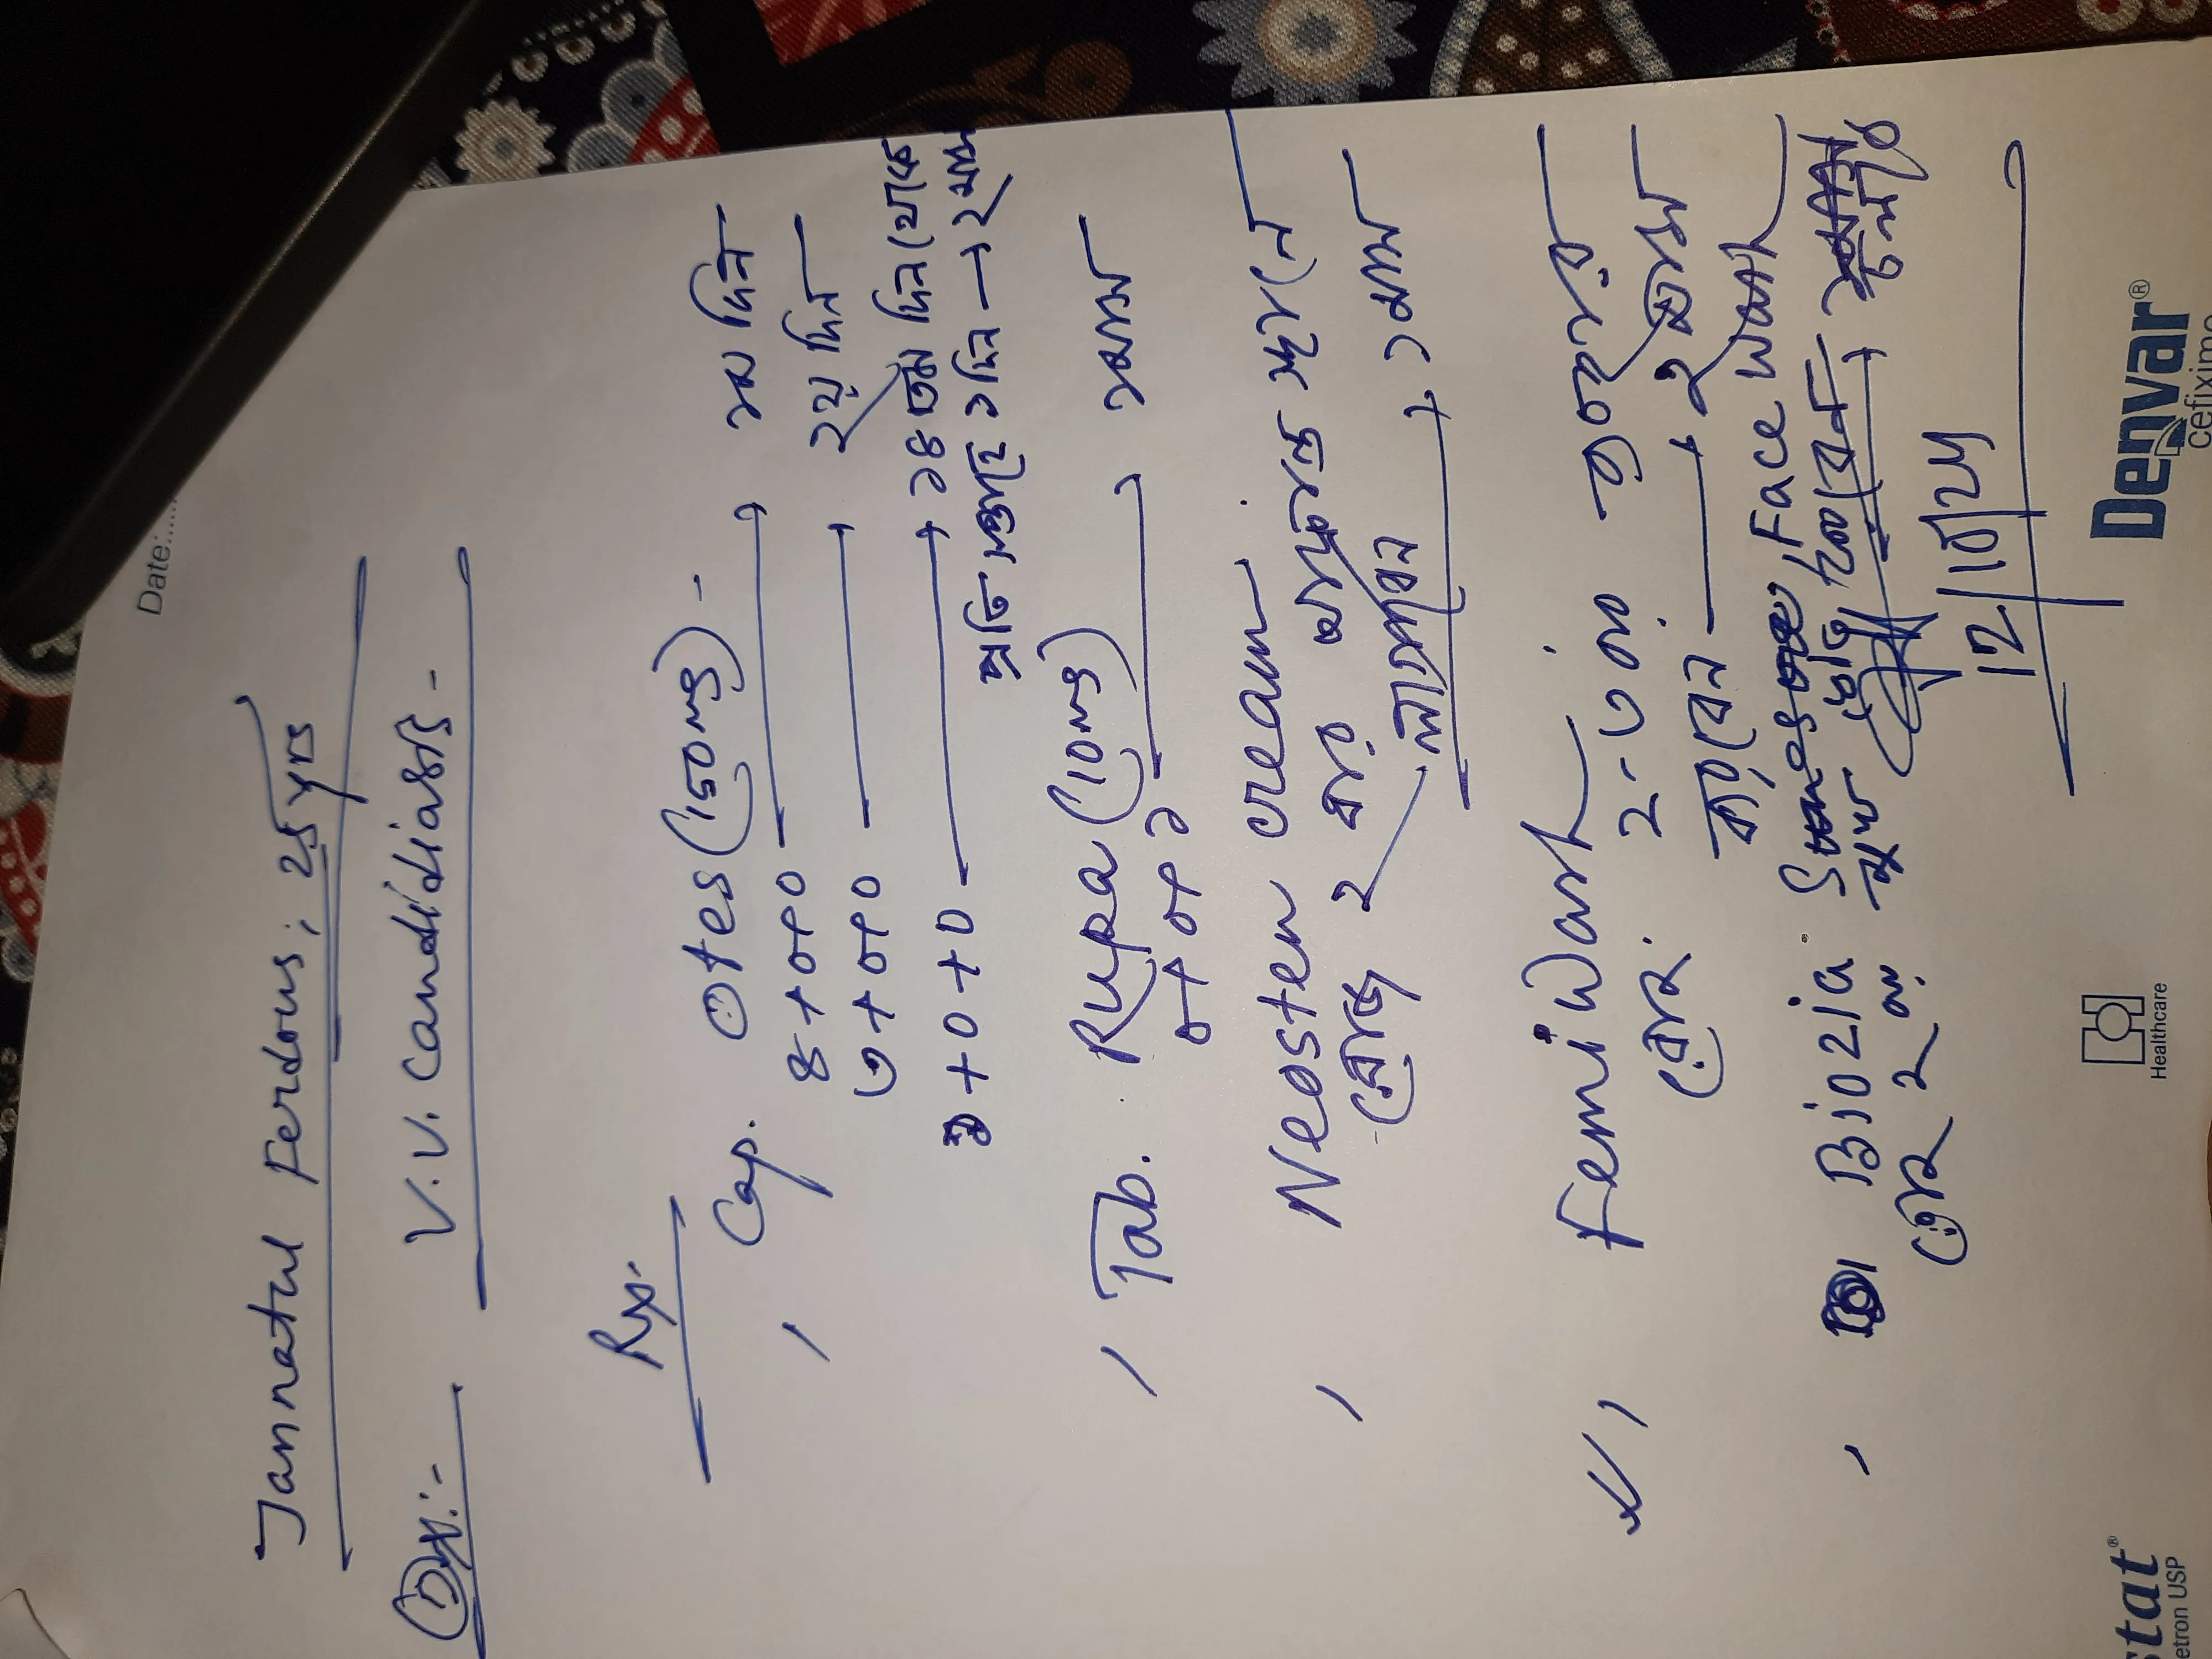 Date:......
Jannatul Ferdous; 25 yrs
Dx:- V.V. candidiasis -
Rx:
, Cap. Otes (150mg) -
৪+০+০ → ১ম দিন
৩+০+০ → ২য় দিন
১+০+০ → ১৪তম দিন থেকে
প্রতি সপ্তাহে ১দিন → ২ মাস
, Tab. Rupa (10mg)
০+০+১ → ১মাস
, Neosten cream
রোজ ২ বার আক্রান্ত স্থানে
লাগাবেন → ১মাস
, Femiwash
২-৩ বার ব্যবহার
করবেন → ২ মাস
, Biozia Face Wash
২ বার মুখ
12/10/24
stat®
etron USP
Healthcare
Denvar®
cefixime